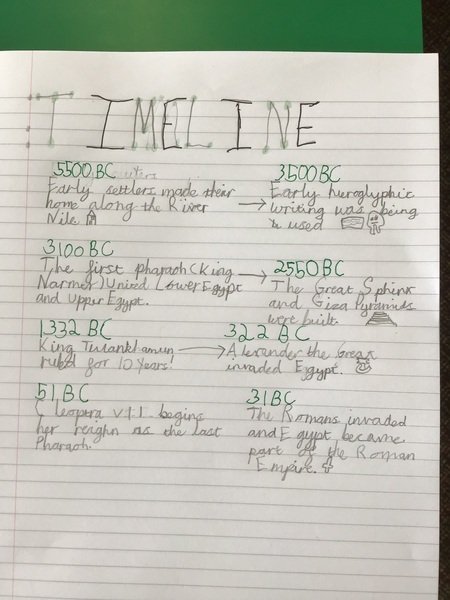 TIMELINE
5500 BC
Early settlers made their
home along the River
Nile
3500 BC
Early hieroglyphic
writing was being
used
3100 BC
The first pharaoh (King
Narmer) United Lower Egypt
and Upper Egypt.
2550 BC
The Great Sphinx
and Giza Pyramids
were built.
1332 BC
King Tutankhamun
ruled for 10 years!
322 BC
Alexander the Great
invaded Egypt.
51 BC
Cleopatra VII begins
her reighn as the last
Pharaoh.
31 BC
The Romans invaded
and Egypt became
part of the Roman
Empire.